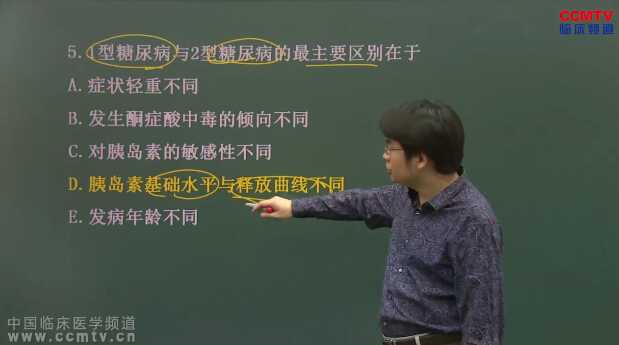 CCMTV
临床频道
5.1型糖尿病与2型糖尿病的最主要区别在于
A.症状轻重不同
B.发生酮症酸中毒的倾向不同
C.对胰岛素的敏感性不同
D.胰岛素基础水平与释放曲线不同
E.发病年龄不同
中国临床医学频道
www.ccmtv.cn